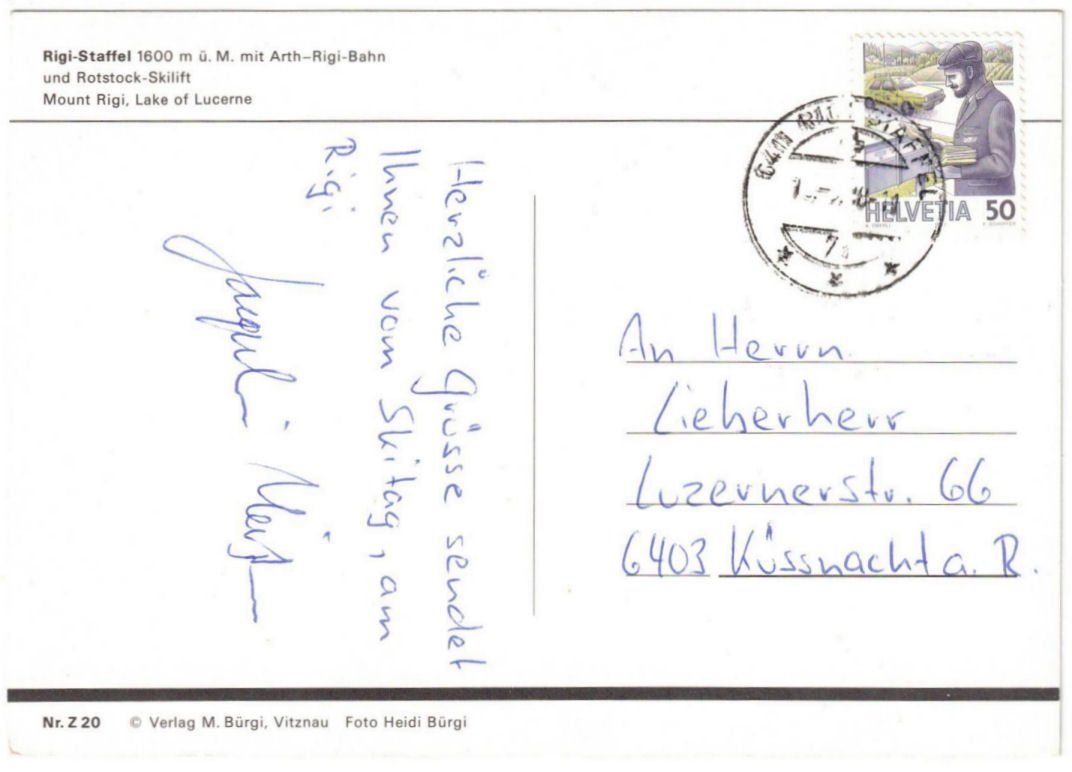 Rigi-Staffel 1600 m ü. M. mit Arth-Rigi-Bahn
und Rotstock-Skilift
Mount Rigi, Lake of Lucerne
HELVETIA 50
Herzliche Grüsse sendet
Ihnen vom Skitag, am
Rigi,
An Herrn
Lieberherr
Luzernerstr. 66
6403 Küssnacht a. R.
Nr. Z 20 © Verlag M. Bürgi, Vitznau Foto Heidi Bürgi